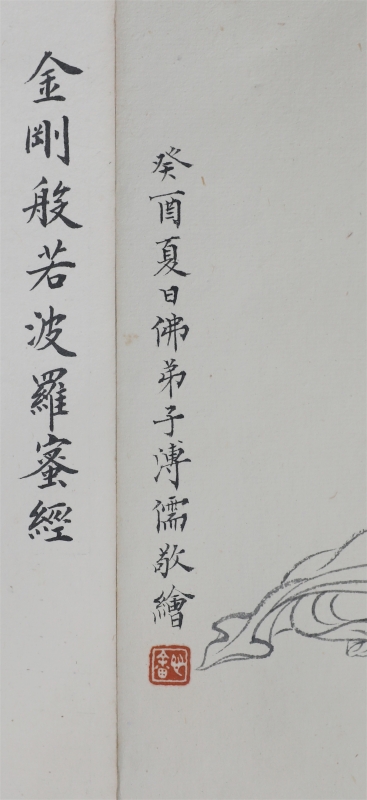 癸酉夏日佛弟子溥儒敬繪
心畬
金剛般若波羅蜜經